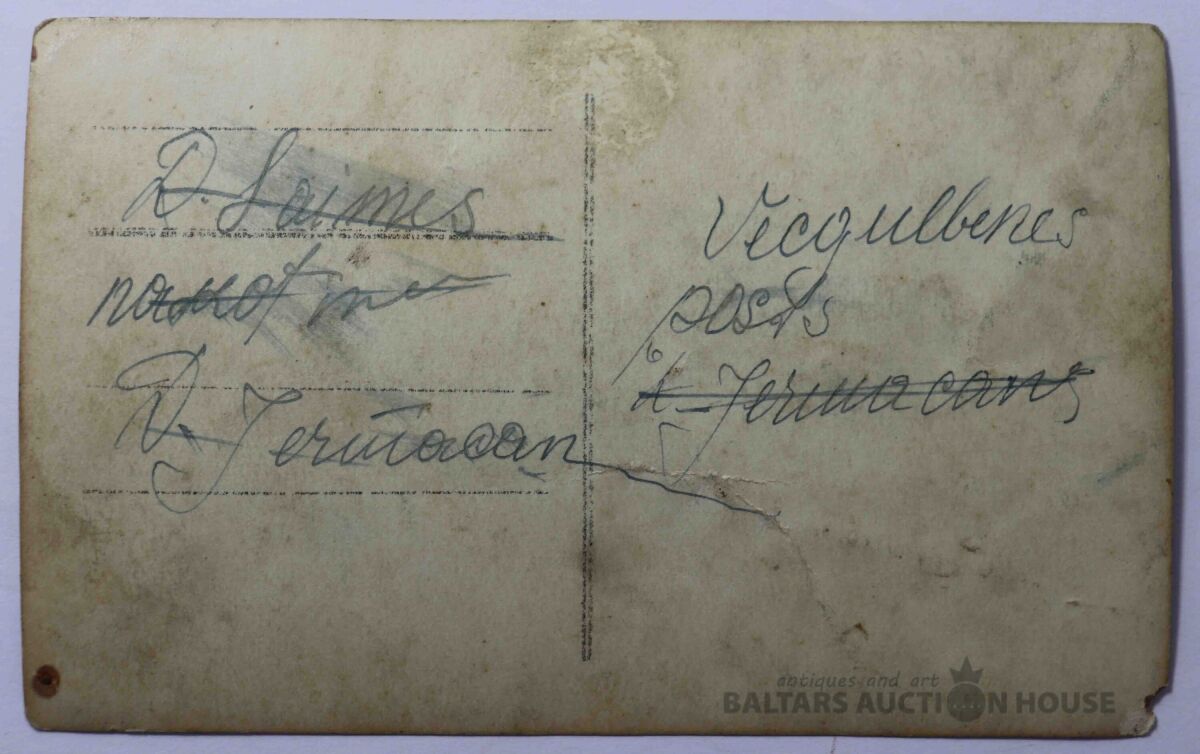 D. Laimes
D. Jermacan
Vecgulbenes
posts
Jermacans
antiques and art
BALTARS AUCTION HOUSE